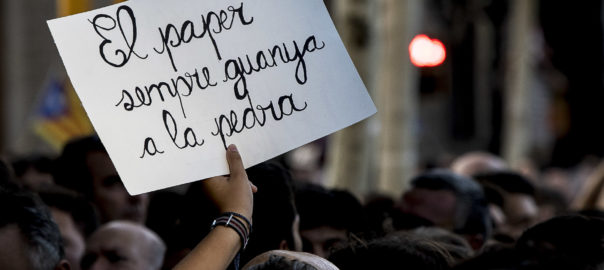 El paper
sempre guanya
a la pedra